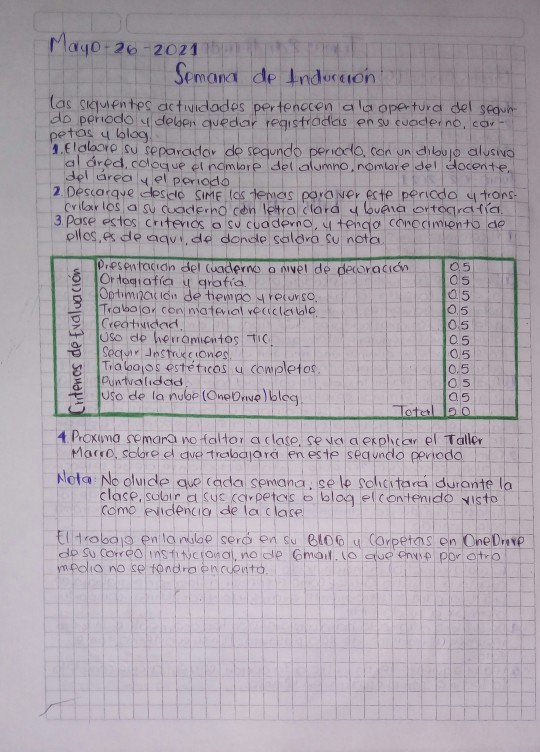 Mayo-26-2021
Semana de Inducción
Las siguientes actividades pertenecen a la apertura del segun-
do periodo y deben quedar registradas en su cuaderno, car-
petas y blog.
1. Elabore su separador de segundo periodo, con un dibujo alusivo
al área, coloque el nombre del alumno, nombre del docente,
del área y el periodo
2. Descargue desde SIME los temas para ver este periodo y trans-
cribirlos a su cuaderno con letra clara y buena ortografía.
3 Pase estos criterios a su cuaderno, y tenga conocimiento de
ellos, es de aquí, de donde saldrá su nota.
Criterios de Evaluación
Presentación del cuaderno a nivel de decoración 0.5
Ortografía y grafía. 0.5
Optimización de tiempo y recurso. 0.5
Trabajar con material reciclable 0.5
Creatividad. 0.5
Uso de herramientas TIC. 0.5
Seguir Instrucciones. 0.5
Trabajos estéticos y completos. 0.5
Puntualidad. 0.5
Uso de la nube (OneDrive) blog. 0.5
Total 5.0
4 Proxima semana no faltar a clase, se va a explicar el Taller
Macro, sobre el que trabajará en este segundo periodo
Nota: No olvide que cada semana, se le solicitará durante la
clase, subir a sus carpetas o blog el contenido visto
como evidencia de la clase
El trabajo en la nube será en su BLOG y Carpetas en OneDrive
de su correo institucional, no de Gmail. Lo que envíe por otro
medio no se tendrá en cuenta.